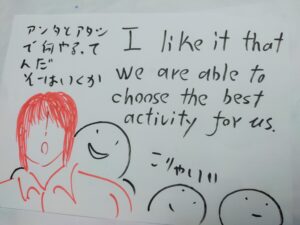 アンタとアタシ
で何やるって
んだ
そーはいくか
I like it that
we are able to
choose the best
activity for us.
こりゃいい